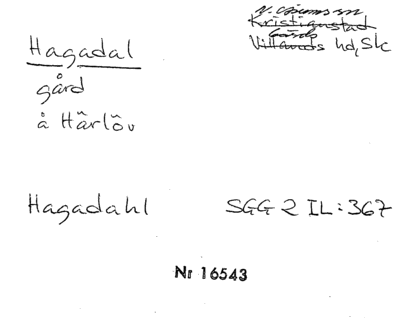 N. Åsums sn
Kristianstad
Gärds
Villands hd, Sk
Hagadal
gård
å Härlöv
Hagadahl SGG 2 IL:367
Nr 16543